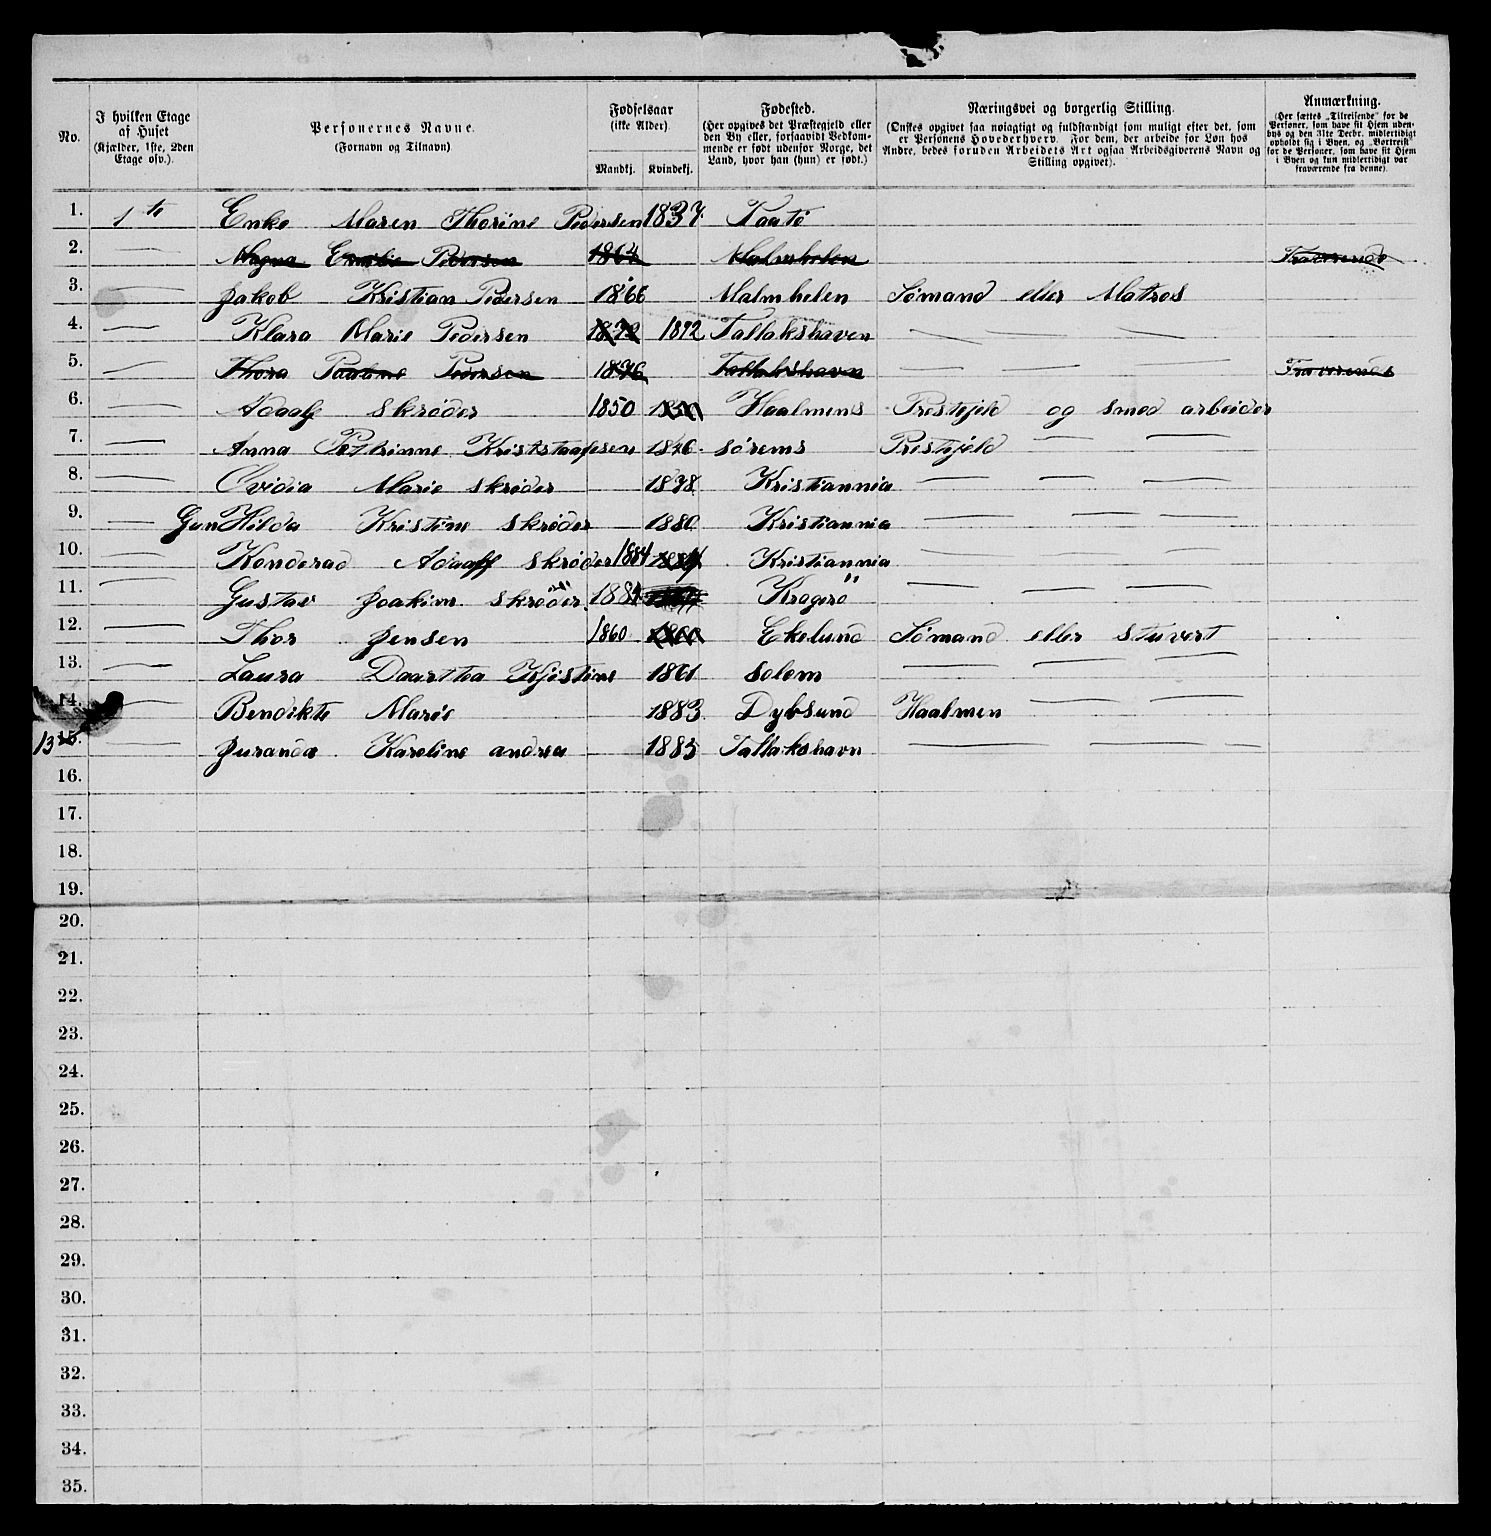 No. I hvilken Etage af Huset (Kjælder, 1ste, 2den Etage osv.). Personernes Navne. (Fornavn og Tilnavn) Fødselsaar (ikke Alder). Mandkj. Kvindekj. Fødested. (Her opgives det Præstegjeld eller den By eller, forsaavidt Vedkommende er født udenfor Norge, det Land, hvor han (hun) er født.) Næringsvei og borgerlig Stilling. (Ønskes opgivet saa nøiagtigt og fuldstændigt som muligt efter det, som er Personens Hovederhverv. For dem, der arbeide for Løn hos Andre, bedes foruden Arbeidets Art ogsaa Arbeidsgiverens Navn og Stilling opgivet). Anmærkning. (Her sættes „Tilreisende" for de Personer, som have sit Hjem udenbys og den 31te Decbr. midlertidigt opholdt sig i Byen, og „Bortreist" for de Personer, som have sit Hjem i Byen og kun midlertidigt var fraværende fra denne).
1. 1te Enke Maren Thorine Pedersen 1837 Taatø
2. — Magna Emilie Pedersen 1864 Malmhelen Fraverende
3. — Jakob Kristian Pedersen 1866 Malmhelen Sømand eller Matros
4. — Klara Marie Pedersen 1872 1872 Tallakshaven — — —
5. — Thora Pedersen 1876 Tallakshavn — — — Fraverende
6. — Adaalf Skrøder 1850 1850 Haalmens Prestejeld og smed arbeider
7. — Anna Petrinne Kriststaafesen 1846 Sørems Prestejeld — —
8. — Ovidia Marie Skrøder 1878 Kristiannia — — —
9. — Gun Hilda Kristine Skrøder — 1880 Kristiannia — — —
10. — Konderad Adaaff Skrøder 1884 1884 Kristiannia — — —
11. — Gustav Joakim Skrøder 188 Kragerø — — —
12. — Thor Jensen 1860 1860 Ekelund Sømand eller stuvert
13. — Laura Daartea Kjistine 1861 Solem — — —
14. — Bendikte Marie 1883 Dybsund Haalmen — —
15. 13 — Juranda Karoline andrea — 1885 Tallakshavn — — —
16.
17.
18.
19.
20.
21.
22.
23.
24.
25.
26.
27.
28.
29.
30.
31.
32.
33.
34.
35.